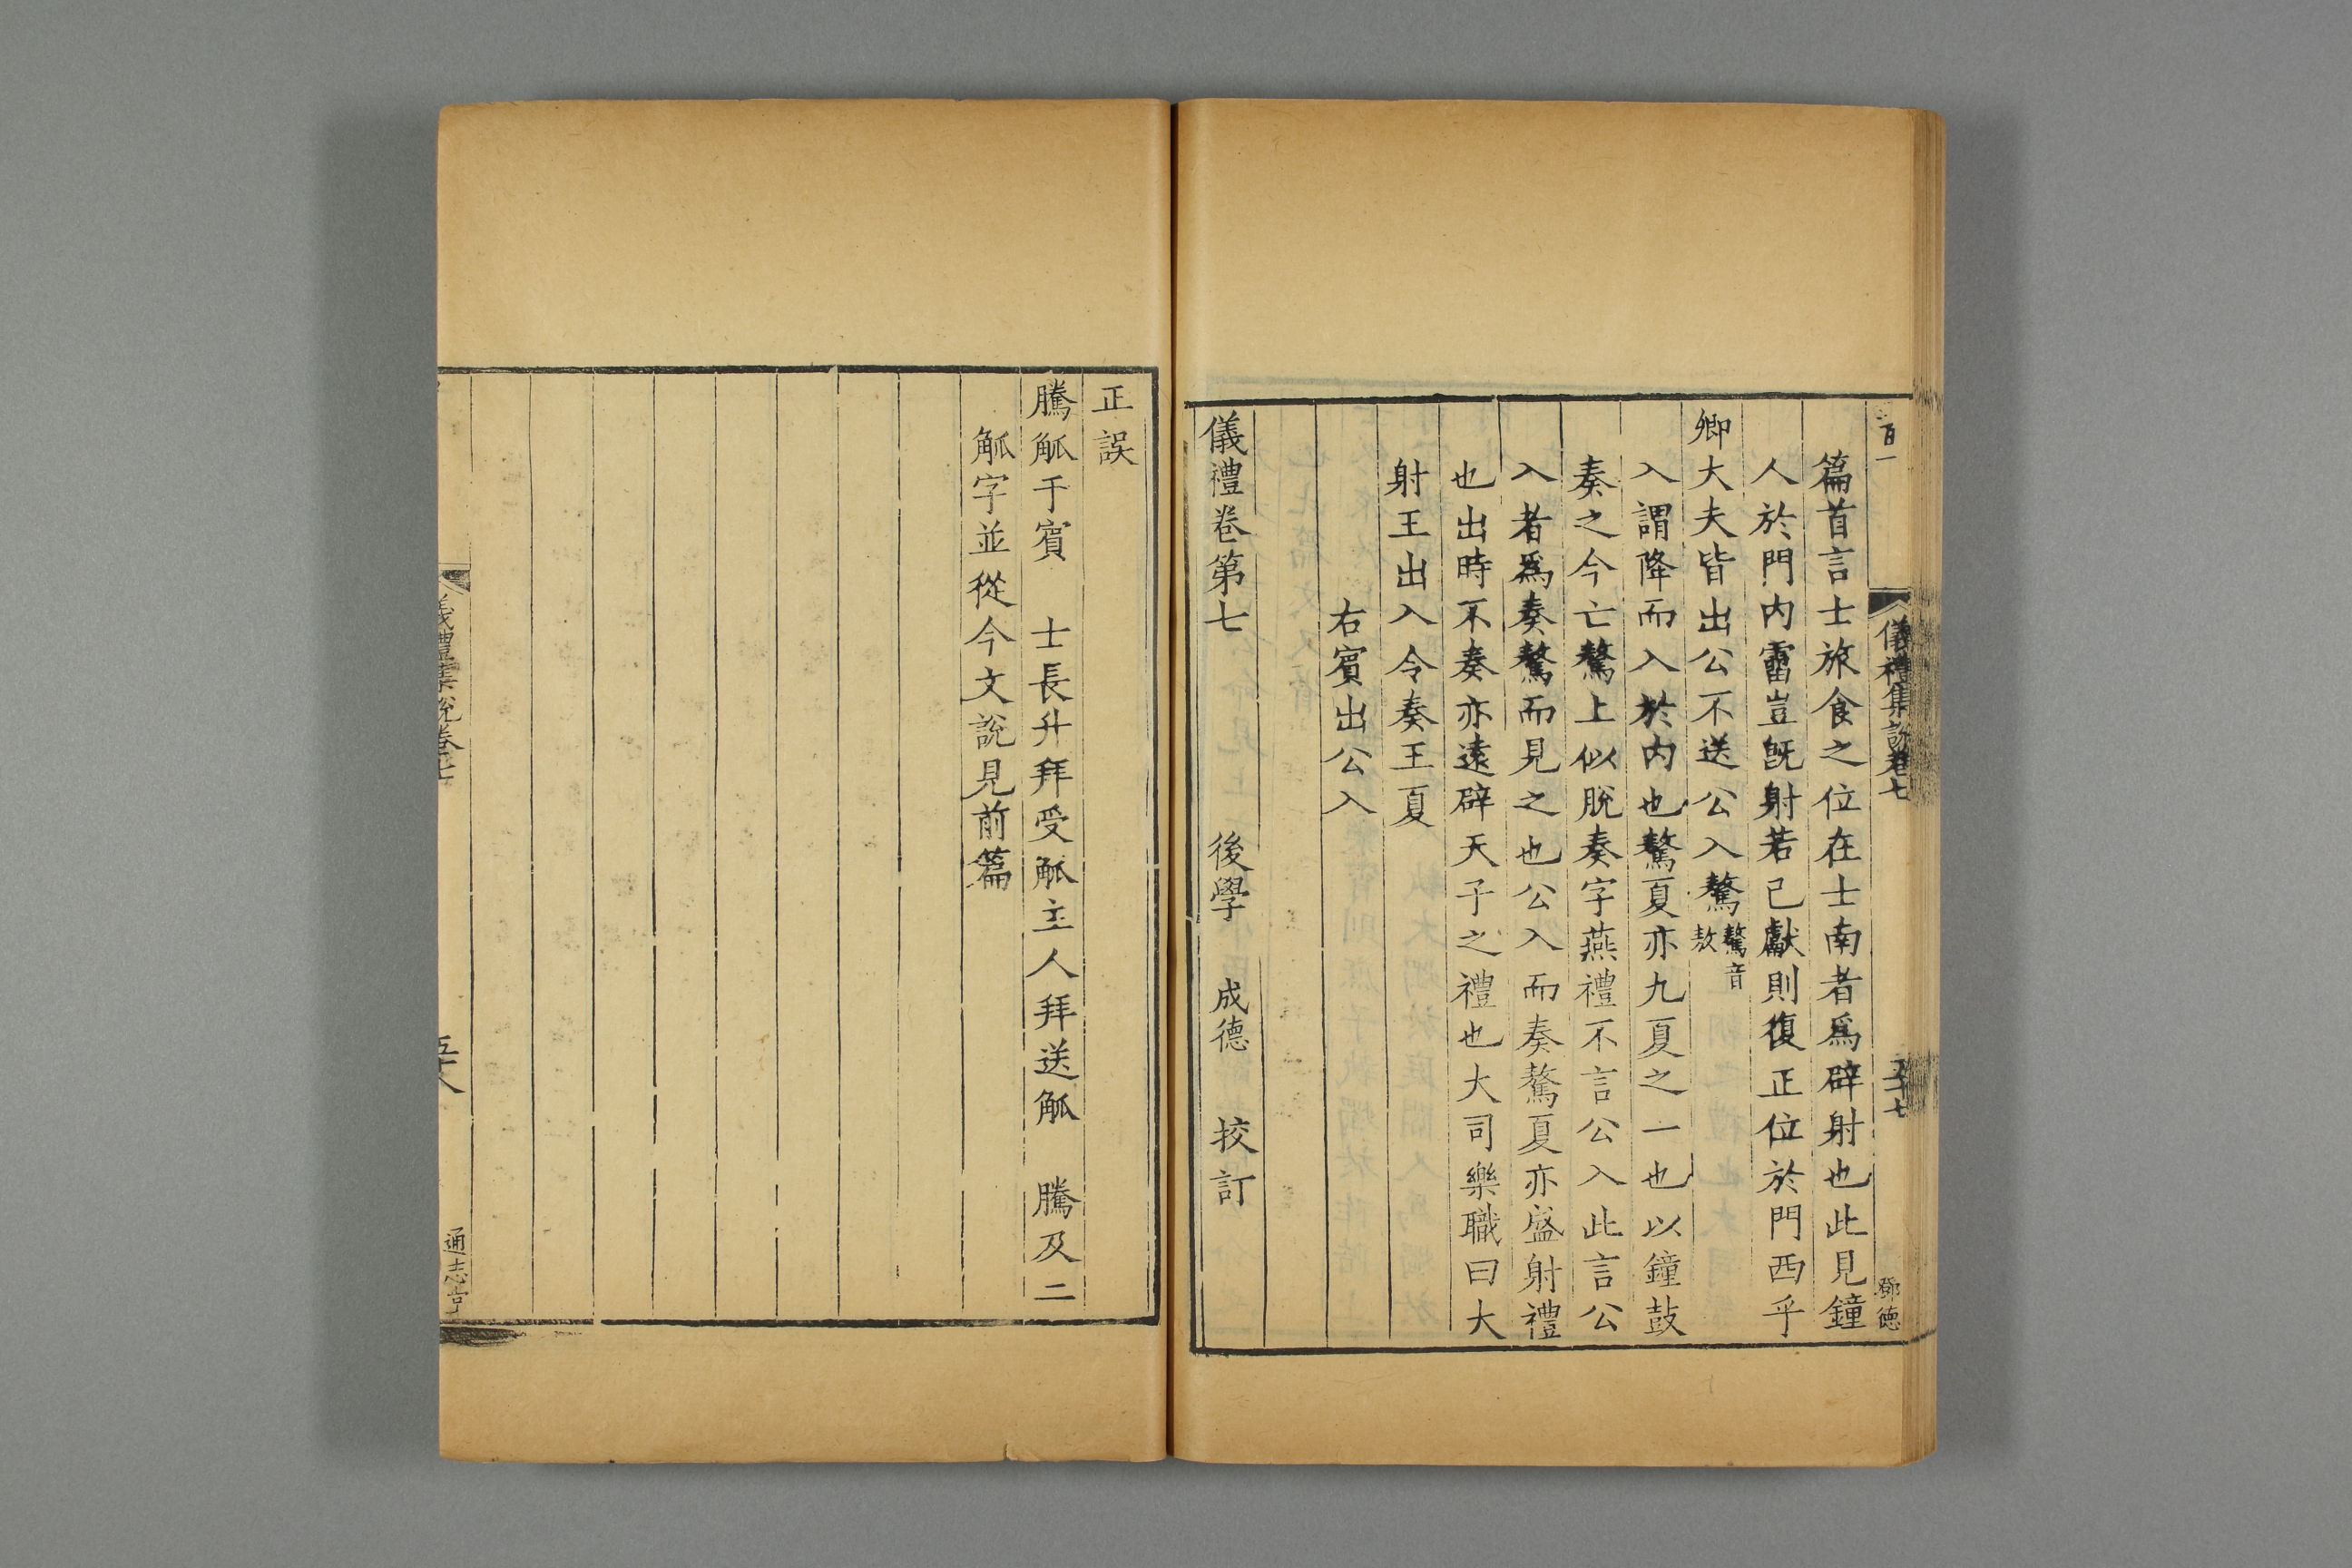 百一
儀禮集説卷七
五十七
鄧德
篇首言士旅食之位在士南者爲辟射也此見鐘
人於門内霤豈旣射若已獻則復正位於門西乎
卿大夫皆出公不送公入驁驁音敖
入謂降而入於内也驁夏亦九夏之一也以鐘鼓
奏之今亡驁上似脫奏字燕禮不言公入此言公
入者爲奏驁而見之也公入而奏驁夏亦盛射禮
也出時不奏亦遠辟天子之禮也大司樂職曰大
射王出入令奏王夏
右賓出公入
儀禮卷第七 後學 成德 挍訂
正誤
騰觚于賓 士長升拜受觚主人拜送觚 騰及二
觚字並從今文說見前篇
儀禮集說卷七
五十八
通志堂